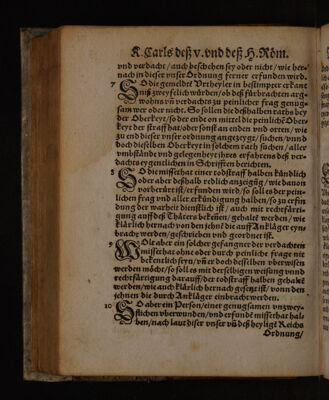 K. Carls deß v. vnd deß H. Röm.
vnd verdacht / auch beschehen sey oder nicht / wie her-
nach in dieser vnser Ordnung ferner erfunden wird.
7 SO die gemeldte Vrtheyler in bestimpter erkant
nuß zweyfelich würden / ob deß fürbrachten arg-
wohns vñ verdachts zu peinlicher frag genug-
sam wer oder nicht. So sollen die deßhalben raths bey
der Oberkeyt / so der ende on mittel die peinliche Ober-
keyt der straff hat / oder sonst an enden vnd orten / wie
zu end dieser vnser ordnung angezeygt / suchen / vnnd
doch dieselben Oberkeyt in solchem rath suchen / aller
vmbstände vnd gelegenheyt ihres erfahrens deß ver-
dachts eygentlichen in Schrifften berichten.
8 SO die missethat einer todstraff halben kündlich
oder aber deßhalb redlich anzeigũg / wie dauon
vorberürt ist / erfunden wird / so soll es der pein-
lichen frag vnd aller erkündigung halben / so zu erfin
dung der warheit dienstlich ist / auch mit rechtferti-
gung auff deß Thäters bekeñen / gehalten werden / wie
klärlich hernach von den jehnẽ die auff Ankläger eyn-
bracht werden / geschrieben vnd geordnet ist.
9 WOlt aber ein solcher gefangner der verdachten
missethat ohne oder durch peinliche frage nit
bekentlich seyn / vñ er doch desselben vberwisen
werden möcht / so soll es mit derselbigen weisung vnnd
rechtfärtigung darauff der todstraff halben gehaltẽ
werden / wie auch klärlich hernach gesetzt ist / vonn den
jehnen die durch Ankläger einbracht werden.
10 SO aber ein Person / einer genugsamen vnzwey-
flichen vberwunden / vnd erfundẽ missethat hal-
ben / nach laut diser vnser vñ deß heyligẽ Reichs
Ordnung /